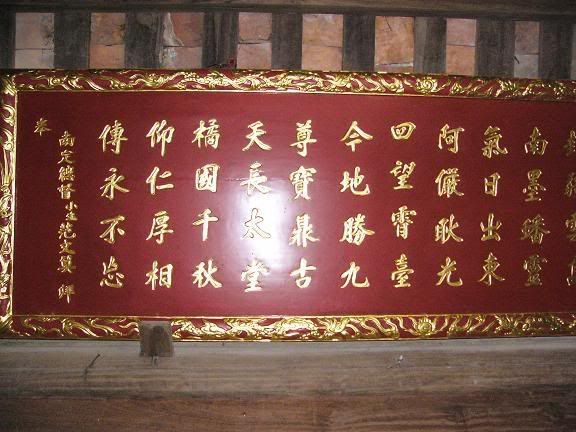 南墨蟠靈
氣日出東
阿儼耿光
回望霄臺
今地勝九
尊寶鼎古
天長太堂
橘國千秋
仰仁厚相
傳永不忘
南定總督小生范文拜
奉